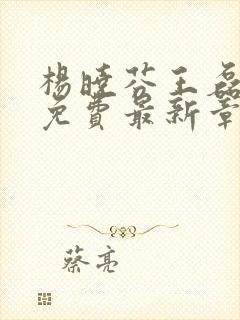 楊曉芬王磊
免費最新章
蔡亮